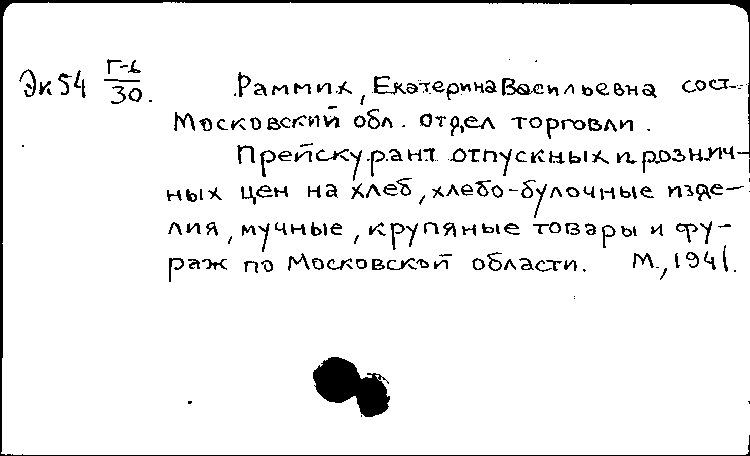 Эк54 Г-6/30. Раммих, Екатерина Васильевна сост.
Московский обл. отдел торговли.
Прейскурант отпускных и рознич-
ных цен на хлеб, хлебо-булочные изде-
лия, мучные, крупяные товары и фу-
раж по Московской области. М., 1941.